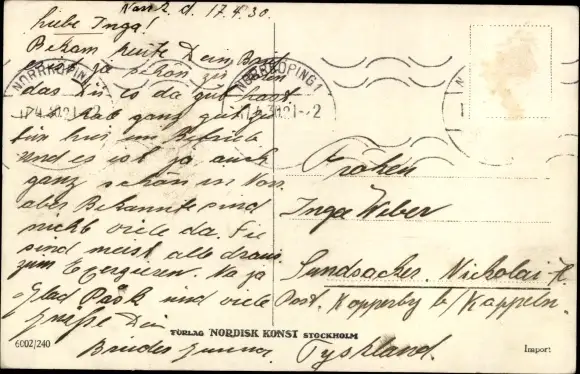 d. 17.4.30.
Liebe Inga!
Bekam heute Dein Brief
ja schön zu
das Du es da gut hast.
hab ganz gut zu
tun hier im Betrieb
und es ist ja auch
ganz schön in Nor.
aber Bekannte sind
nicht viele da. Sie
sind meist alle draus
zum Exerzieren. Na ja
Glad Påsk und viele
Grüße Dein
Bruder Gunnar.
NORRKÖPING 1
NORRKÖPING 1
17.4.30.21-22
Fröken
Inga Weber
Sundsacker. Nickolai H.
Post. Kopperby b/Kappeln.
Tyskland.
FÖRLAG NORDISK KONST STOCKHOLM
6002/240
Import